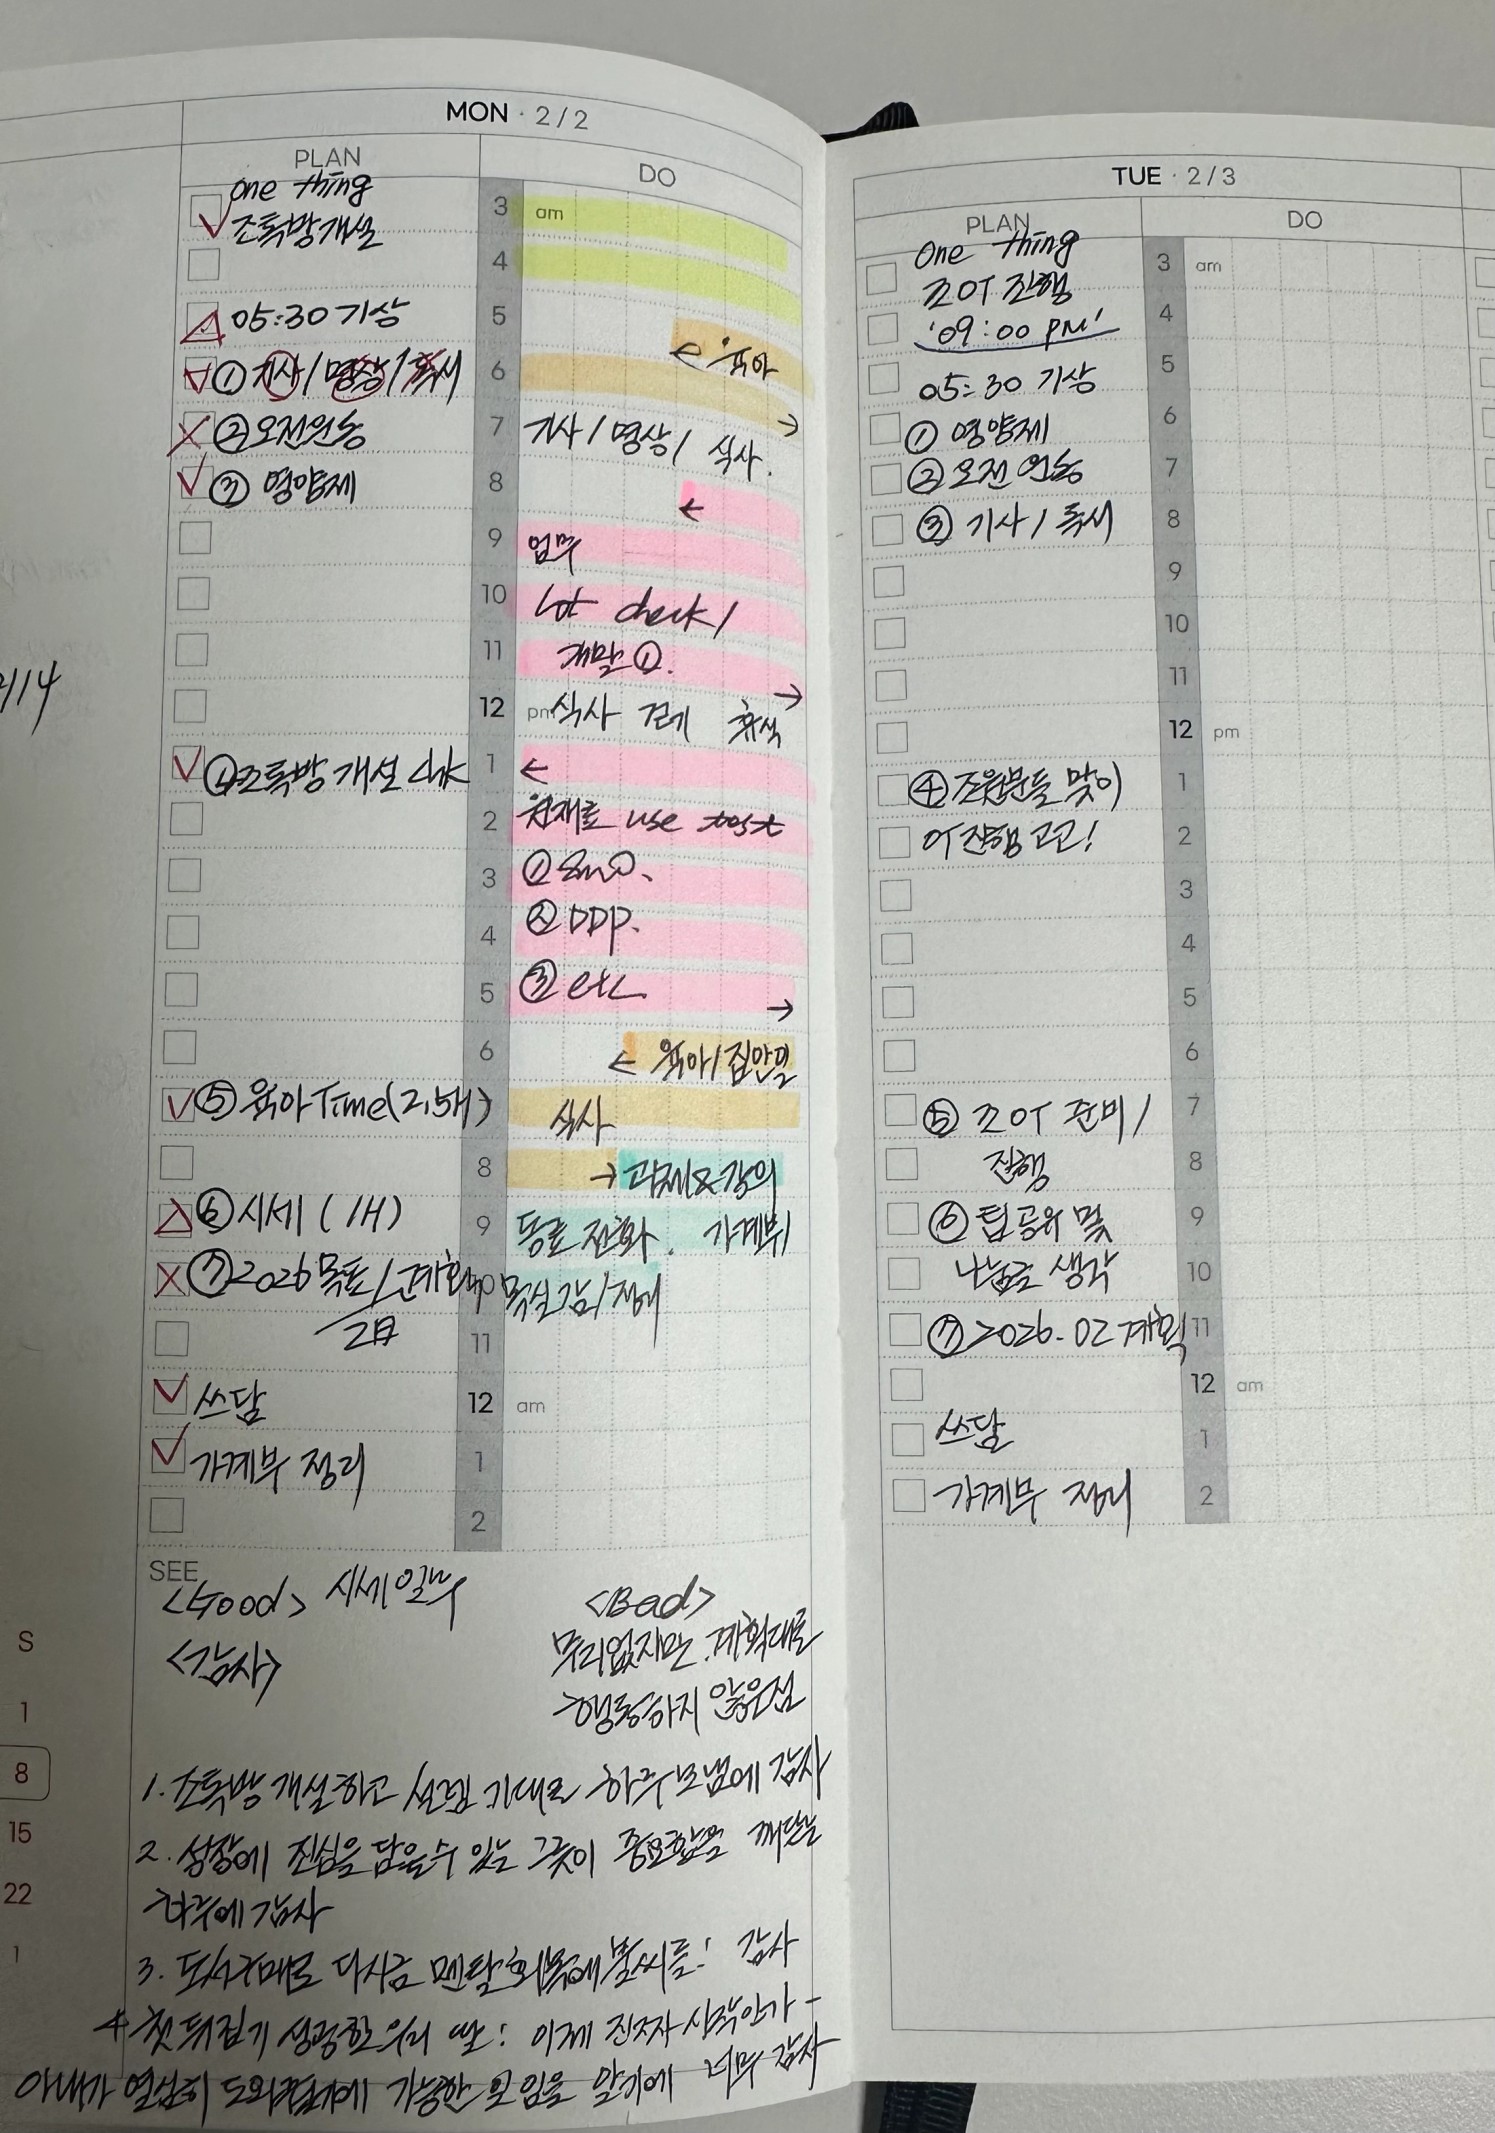 MON · 2/2
PLAN
DO
one thing
조톡방개설
05:30 기상
① 기사/명상/독서
② 오전운동
③ 영양제
④ 조톡방 개설 chk
⑤ 육아Time(2.5H)
⑥ 시세 (1H)
⑦ 2026목표/계획
2月
쓰담
가계부 정리
3 am
4
5
← 육아
6
→
7 기사/명상/ 식사.
8
←
9 업무
10 Lot check/
11 개발①.
→
12 pm 식사 걷기 휴식
1 ←
2 원재료 use test
3 ①
4 ② DDP.
5 ③ etc.
→
6 ← 육아/집안일
7 식사
8 → 과제&강의
9 동료 전화. 가계부/
10 목실감/정리
11
12 am
1
2
SEE
<Good> 시세일부
<Bad>
무리없지만 계획대로
행동하지 않은점
<감사>
1. 조톡방 개설하고 설렘 기대로 하루보냄에 감사
2. 성장에 진심을 담을수 있는 그릇이 중요함을 깨닫는
하루에 감사
3. 도서구매로 다시금 멘탈회복에 불씨를! 감사
4 첫 뒤집기 성공한 우리 딸! 이제 진짜 시작인가 -
아내가 열심히 도와줬기에 가능한 일임을 알기에 너무 감사
2/14
S
1
8
15
22
1
TUE · 2/3
PLAN
DO
One thing
조OT 진행
'09:00 PM'
05:30 기상
① 영양제
② 오전 운동
③ 기사/독서
④ 조원분들 맞이
OT진행 고고!
⑤ 조OT 준비/
진행
⑥ 팁공유 및
나눔글 생각
⑦ 2026.02 계획
쓰담
가계부 정리
3 am
4
5
6
7
8
9
10
11
12 pm
1
2
3
4
5
6
7
8
9
10
11
12 am
1
2